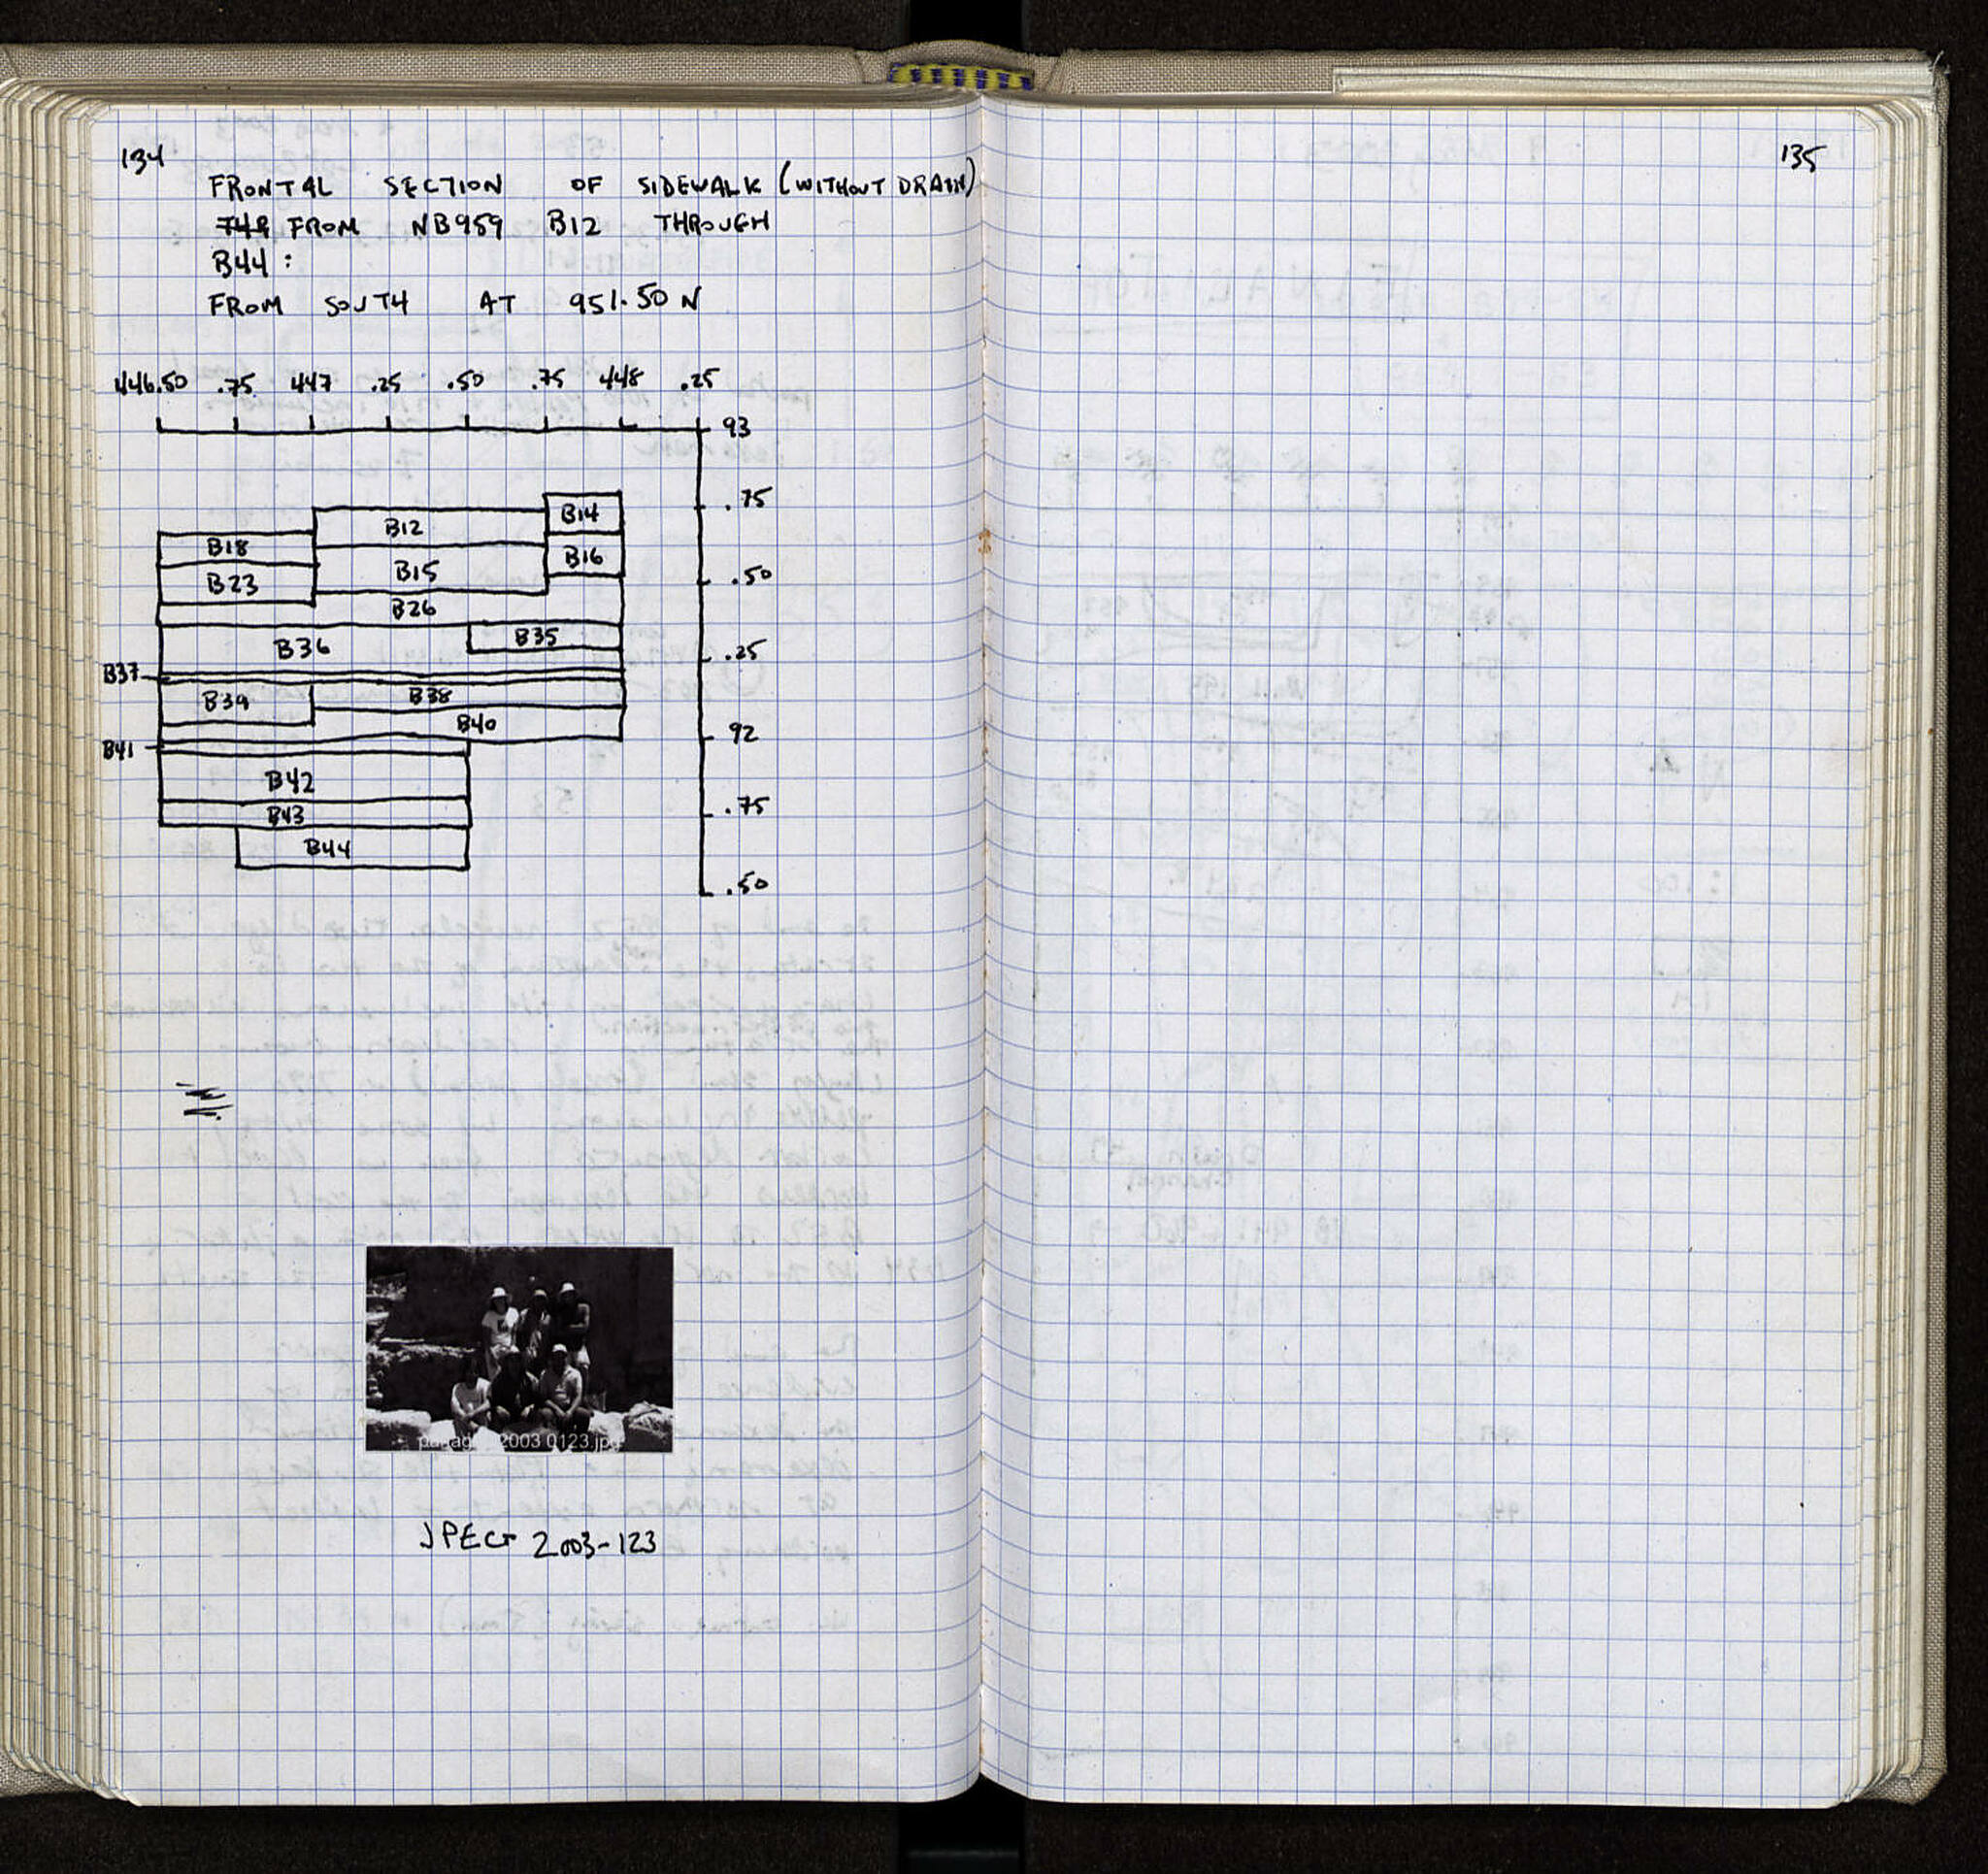 134
FRONTAL SECTION OF SIDEWALK (WITHOUT DRAIN)
FROM NB959 B12 THROUGH
B44:
FROM SOUTH AT 951.50 N
446.50 .75 447 .25 .50 .75 448 .25
93
.75
B14
B12
B18
B16
B15
.50
B23
B26
B35
B36
.25
B37
B38
B39
B40
92
B41
B42
.75
B43
B44
.50
2003 0123.jpg
JPEG 2003-123
135